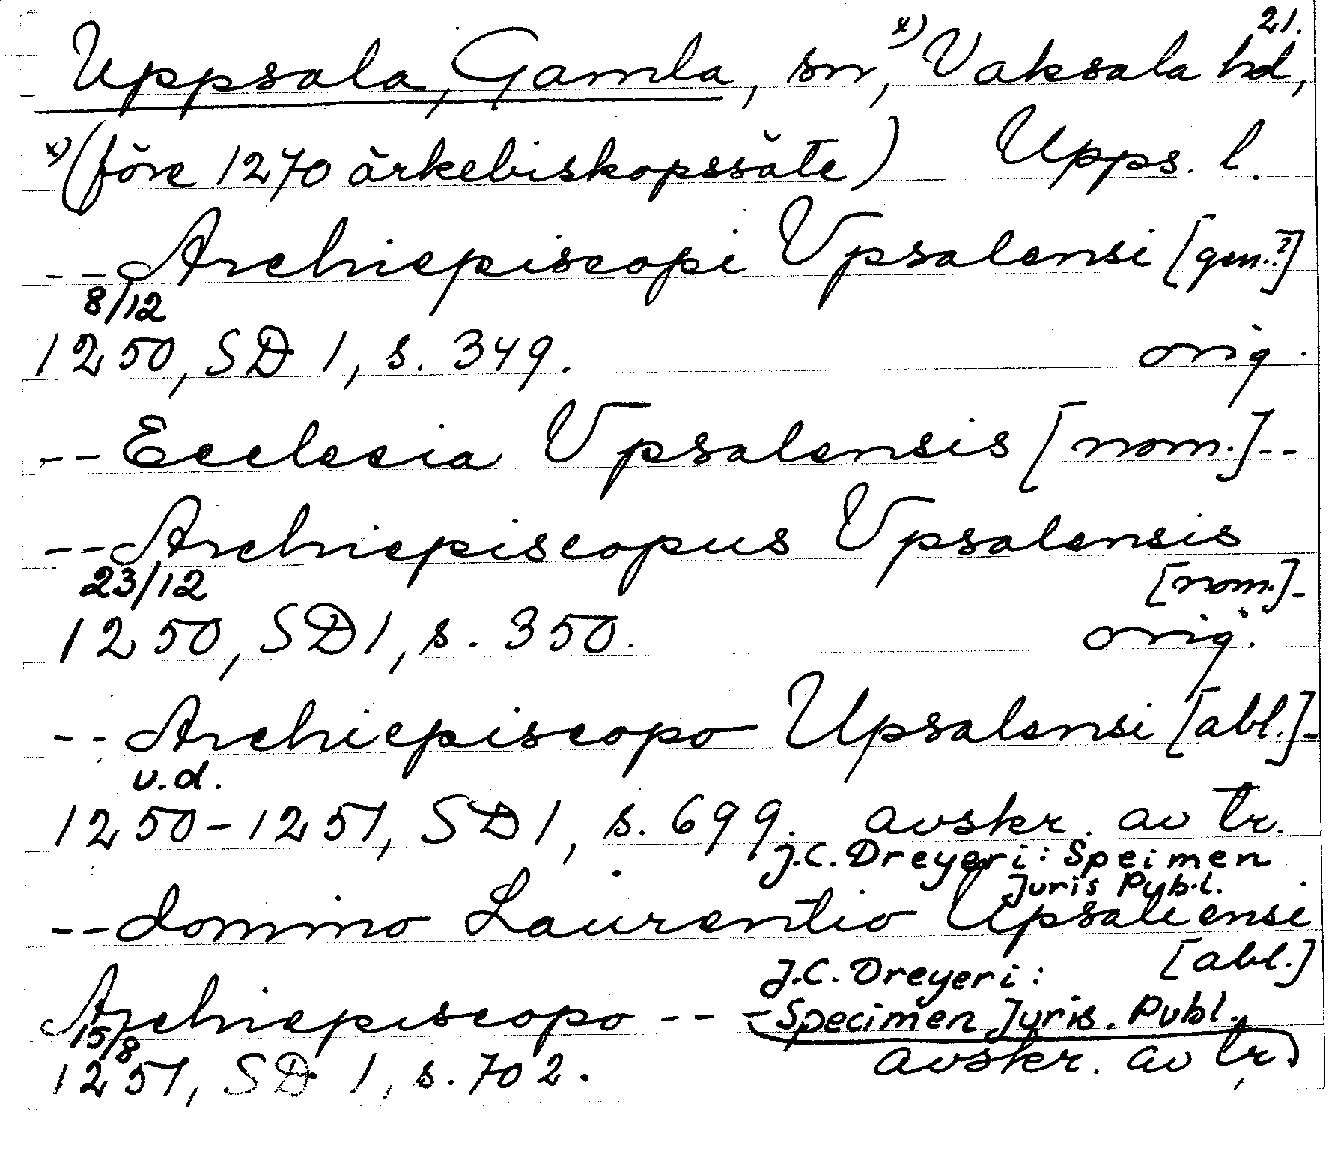 21.
Uppsala, Gamla, sn, x) Vaksala hd,
x) (före 1270 ärkebiskopssäte) Upps. l.
-- Archiepiscopi Vpsalensi [gen.?]
8/12
1250, SD 1, s. 349. orig.
-- Ecclesia Vpsalensis [nom.]--
-- Archiepiscopus Vpsalensis
23/12 [nom.]-
1250, SD 1, s. 350. orig.
-- Archiepiscopo Upsalensi [abl.]-
u.d.
1250-1251, SD 1, s. 699. avskr. av tr.
J.C. Dreyeri: Speimen
Juris Publ.
-- domino Laurentio Upsaliensi
[abl.]
Archiepiscopo -- - J.C. Dreyeri:
Specimen Juris. Publ.
15/8
1251, SD 1, s. 702. avskr. av tr.